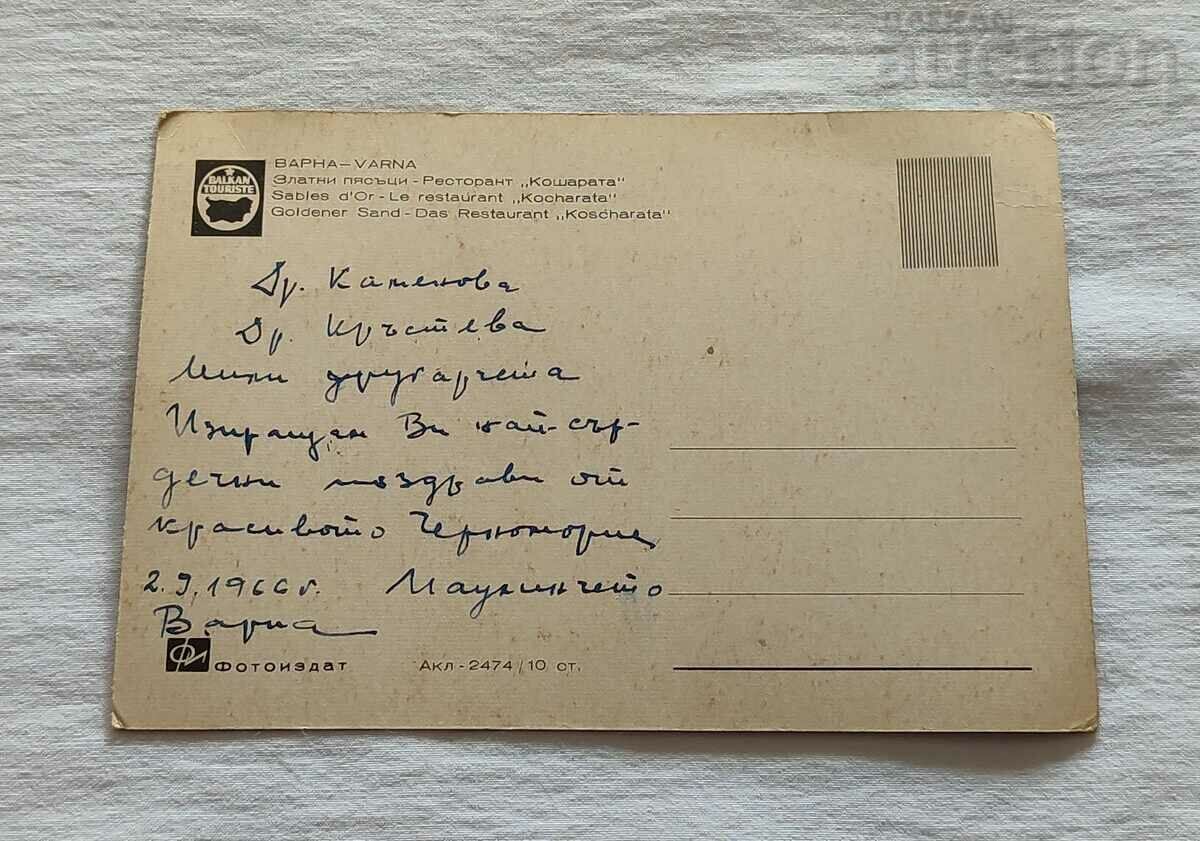 BALKAN
AUCTION
BALKAN
TOURISTE
ВАРНА – VARNA
Златни пясъци - Ресторант „Кошарата"
Sables d'Or - Le restaurant „Kocharata"
Goldener Sand - Das Restaurant „Koscharata"
Др. Каменова
Др. Кръстева
Мили другарчета
Изпращам Ви най-сър-
дечни поздрави от
красивото Черноморие
2.9.1966 г.
Варна
Фотоиздат
Акл - 2474 / 10 ст.